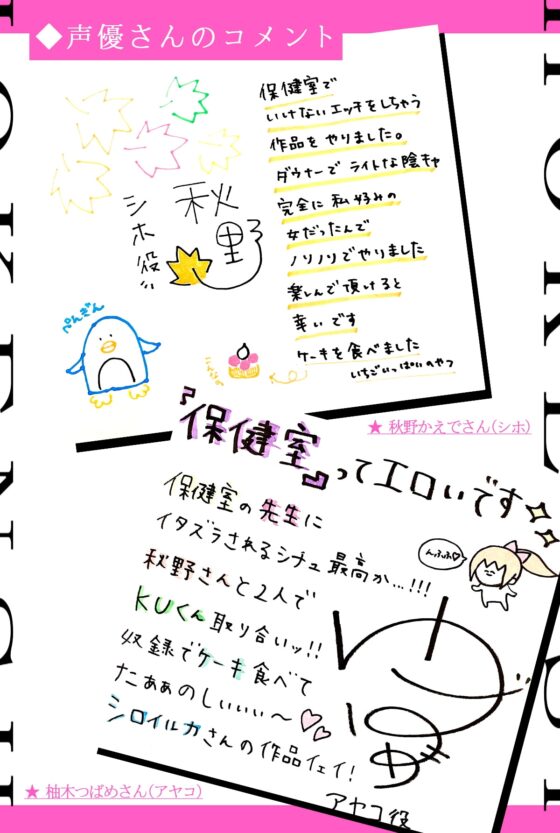 ◆声優さんのコメント
保健室で
いけないエッチをしちゃう
作品をやりました。
ダウナーでライトな陰キャ
完全に私好みの
女だったんで
ノリノリでやりました
楽しんで頂けると
幸いです
ケーキを食べました
いちごいっぱいのやつ
シホ役!!
ぺんぎん
★ 秋野かえでさん(シホ)
『保健室』ってエロいです
保健室の先生に
イタズラされるシチュ最高か…!!!
秋野さんと2人で
KUくん取り合いッ!!
収録でケーキ食べて
たぁぁのしぃぃぃ〜
シロイルカさんの作品イェイ!
んふふ♡
ゆずき
アヤコ役
★ 柚木つばめさん(アヤコ)
HOKENSHITSU